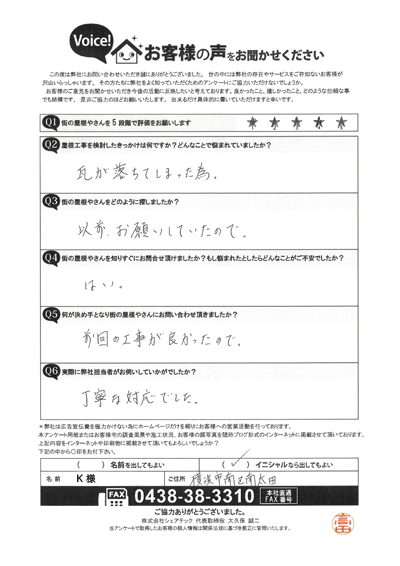 Voice!
お客様の声をお聞かせください
この度は弊社にお問い合わせいただき誠にありがとうございました。世の中には弊社の存在やサービスをご存知ないお客様が
沢山いらっしゃいます。その方たちにも弊社をよく知っていただくためのアンケートにご協力いただけないでしょうか。
お客様のご意見をお聞かせいただき今後の活動に反映したいと考えております。良かったこと、嬉しかったこと、どのような些細な事
でも結構です。是非ご協力のほどお願いいたします。出来るだけ具体的に書いていただけますと幸いです。
Q1 街の屋根やさんを5段階で評価をお願いします ★ ★ ★ ★ ★
Q2 屋根工事を検討したきっかけは何ですか?どんなことで悩まれていましたか?
瓦が落ちてしまった為。
Q3 街の屋根やさんをどのように探しましたか?
以前、お願いしていたので。
Q4 街の屋根やさんを知りすぐにお問合せ頂けましたか?もし悩まれたとしたらどんなことがご不安でしたか?
はい。
Q5 何が決め手となり街の屋根やさんにお問い合わせ頂きましたか?
前回の工事が良かったので。
Q6 実際に弊社担当者がお伺いしていかがでしたか?
丁寧な対応でした。
*弊社は広告宣伝費を極力かけない為にホームページだけを頼りにお客様への営業活動を行っております。
本アンケート用紙またはお客様宅の調査風景や施工状況、お客様の顔写真を随時ブログ形式のインターネットに掲載させて頂いております。
上記内容をインターネットや印刷物に掲載させて頂いてもよろしいでしょうか?
下記の中から〇印をお付け下さい。
( )名前を出してもよい ( ✓ )イニシャルなら出してもよい
名前 K様 ご住所 横浜市南区南太田
FAX 0438-38-3310 本社直通 FAX番号
ご協力ありがとうございました。
株式会社シェアテック 代表取締役 大久保 誠二
当アンケートで取得したお客様の個人情報は関係法規に基づき厳正に管理いたします。